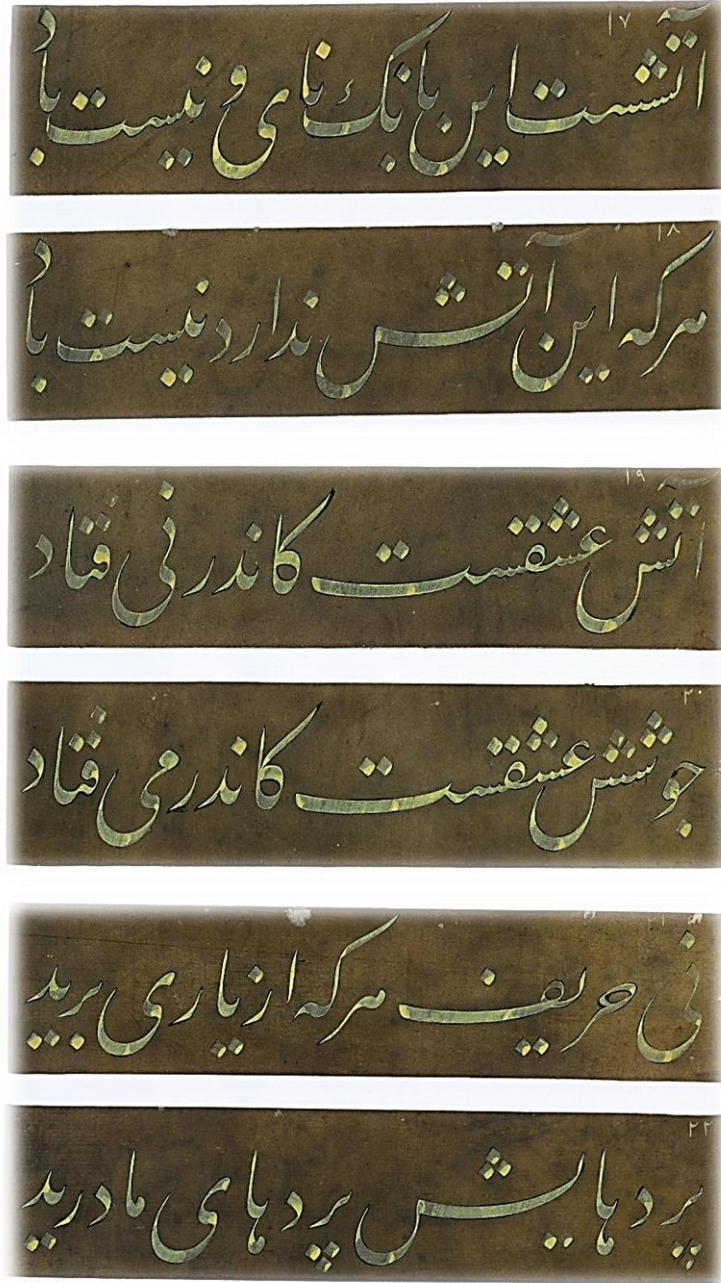 ۱۷
آتشست این بانک نای و نیست باد
۱۸
هرکه این آتش ندارد نیست باد
۱۹
آتش عشقست کاندر نی فتاد
۲۰
جوشش عشقست کاندر می فتاد
۲۱
نی حریف هرکه از یاری برید
۲۲
پردهایش پردهای ما درید